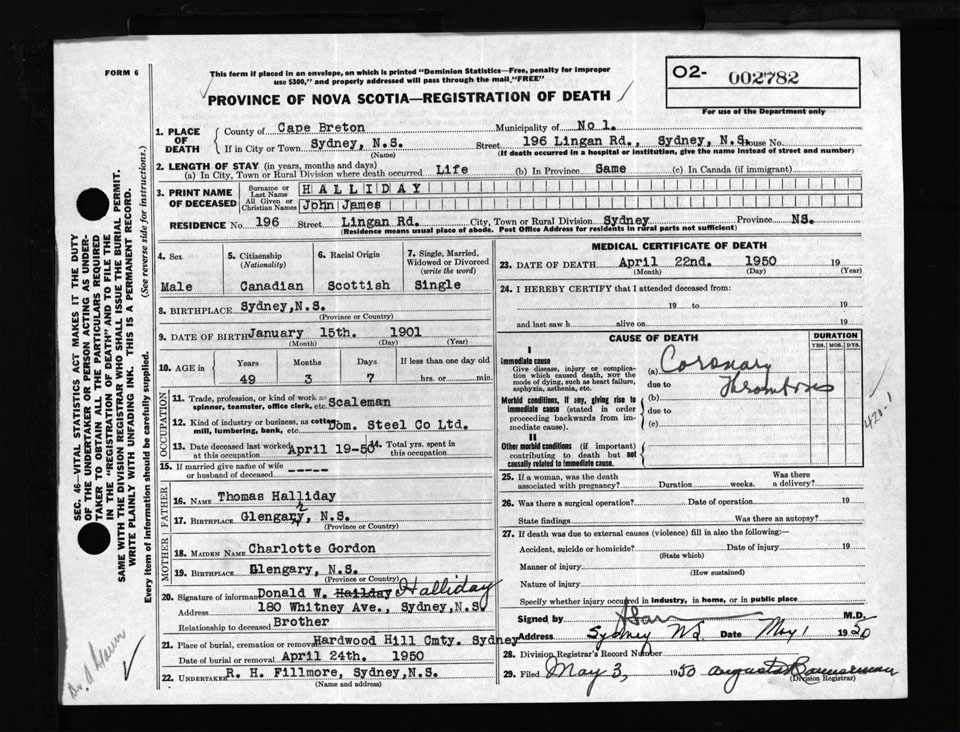 FORM 6
This form if placed in an envelope, on which is printed "Dominion Statistics—Free, penalty for improper
use $300," and properly addressed will pass through the mail "FREE"
O2- 002782
For use of the Department only
PROVINCE OF NOVA SCOTIA—REGISTRATION OF DEATH
1. PLACE OF DEATH
County of Cape Breton Municipality of No 1.
If in City or Town Sydney, N.S. Street 196 Lingan Rd., Sydney, N.S. House No.
(Name) (If death occurred in a hospital or institution, give the name instead of street and number)
2. LENGTH OF STAY (in years, months and days)
(a) In City, Town or Rural Division where death occurred Life (b) In Province Same (c) In Canada (if immigrant)
3. PRINT NAME OF DECEASED
Surname or Last Name HALLIDAY
All Given or Christian Names John James
RESIDENCE No. 196 Street Lingan Rd. City, Town or Rural Division Sydney Province NS.
(Residence means usual place of abode. Post Office Address for residents in rural parts not sufficient)
4. Sex
Male
5. Citizenship
(Nationality)
Canadian
6. Racial Origin
Scottish
7. Single, Married,
Widowed or Divorced
(write the word)
Single
8. BIRTHPLACE Sydney,N.S.
(Province or Country)
9. DATE OF BIRTH January 15th. 1901
(Month) (Day) (Year)
10. AGE in
Years Months Days If less than one day old
49 3 7 hrs. or min.
OCCUPATION
11. Trade, profession, or kind of work as
spinner, teamster, office clerk, etc. Scaleman
12. Kind of industry or business, as cotton
mill, lumbering, bank, etc. Dom. Steel Co Ltd.
13. Date deceased last worked
at this occupation April 19-50
14. Total yrs. spent in
this occupation
15. If married give name of wife
or husband of deceased -----
FATHER
16. NAME Thomas Halliday
17. BIRTHPLACE Glengary, N.S.
(Province or Country)
MOTHER
18. MAIDEN NAME Charlotte Gordon
19. BIRTHPLACE Glengary, N.S.
(Province or Country)
20. Signature of informant Donald W. Hailday Halliday
Address 180 Whitney Ave., Sydney,N.S.
Relationship to deceased Brother
21. Place of burial, cremation or removal Hardwood Hill Cmty. Sydney
Date of burial or removal April 24th. 1950
22. UNDERTAKER R. H. Fillmore, Sydney,N.S.
(Name and address)
MEDICAL CERTIFICATE OF DEATH
23. DATE OF DEATH April 22nd. 1950 19
(Month) (Day) (Year)
24. I HEREBY CERTIFY that I attended deceased from:
19 to 19
and last saw h alive on 19
CAUSE OF DEATH
DURATION
YRS. MOS. DYS.
I
Immediate cause
Give disease, injury or complica-
tion which caused death, NOT the
mode of dying, such as heart failure,
asphyxia, asthenia, etc.
(a) Coronary
due to Thrombosis
Morbid conditions, if any, giving rise to
immediate cause (stated in order
proceeding backwards from im-
mediate cause).
(b)
due to
(c)
II
Other morbid conditions (if important)
contributing to death but not
causally related to immediate cause.
420-1
25. If a woman, was the death
associated with pregnancy? Duration weeks. Was there
a delivery?
26. Was there a surgical operation? Date of operation 19
State findings Was there an autopsy?
27. If death was due to external causes (violence) fill in also the following:—
Accident, suicide or homicide? Date of injury 19
(State which)
Manner of injury
(How sustained)
Nature of injury
Specify whether injury occurred in industry, in home, or in public place
Signed by M.D.
Address Sydney N.S. Date May 1 1950
28. Division Registrar's Record Number
29. Filed May 3, 1950 Augusta Bannerman
(Division Registrar)
SEC. 46—VITAL STATISTICS ACT MAKES IT THE DUTY
OF THE UNDERTAKER OR PERSON ACTING AS UNDER-
TAKER TO OBTAIN ALL THE PARTICULARS REQUIRED
IN THE "REGISTRATION OF DEATH" AND TO FILE THE
SAME WITH THE DIVISION REGISTRAR WHO SHALL ISSUE THE BURIAL PERMIT.
WRITE PLAINLY WITH UNFADING INK. THIS IS A PERMANENT RECORD.
Every item of information should be carefully supplied. (See reverse side for instructions.)